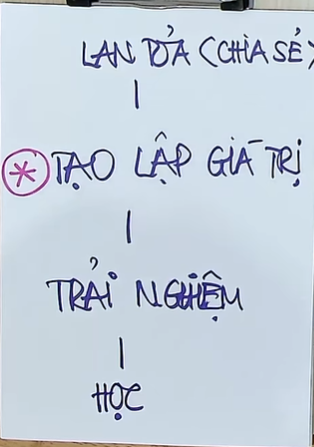 LAN TỎA (CHIA SẺ)
* TẠO LẬP GIÁ TRỊ
TRẢI NGHIỆM
HỌC